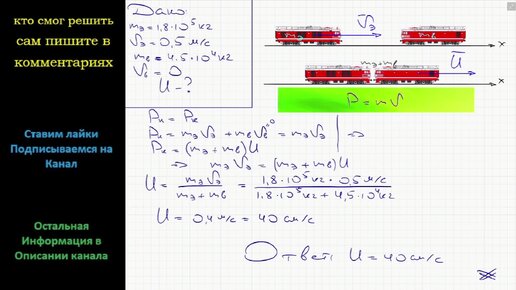 кто смог решить
сам пишите в
комментариях
Ставим лайки
Подписываемся на
Канал
Остальная
Информация в
Описании канала
Дано:
mэ=1,8·10⁵кг
Vэ=0,5 м/с
mв=4,5·10⁴кг
Vв=0
U-?
mэ
Vэ
mв
x
mэ+mв
U
x
P=mV
Pн = Pк
Pн = mэVэ + mвVв⁼⁰ = mэVэ
Pк = (mэ+mв)U
⇒
⇒ mэVэ = (mэ+mв)U
U = mэVэ / mэ+mв = 1,8·10⁵кг·0,5м/с / 1,8·10⁵кг+4,5·10⁴кг
U = 0,4м/с = 40см/с
Ответ: U=40см/с